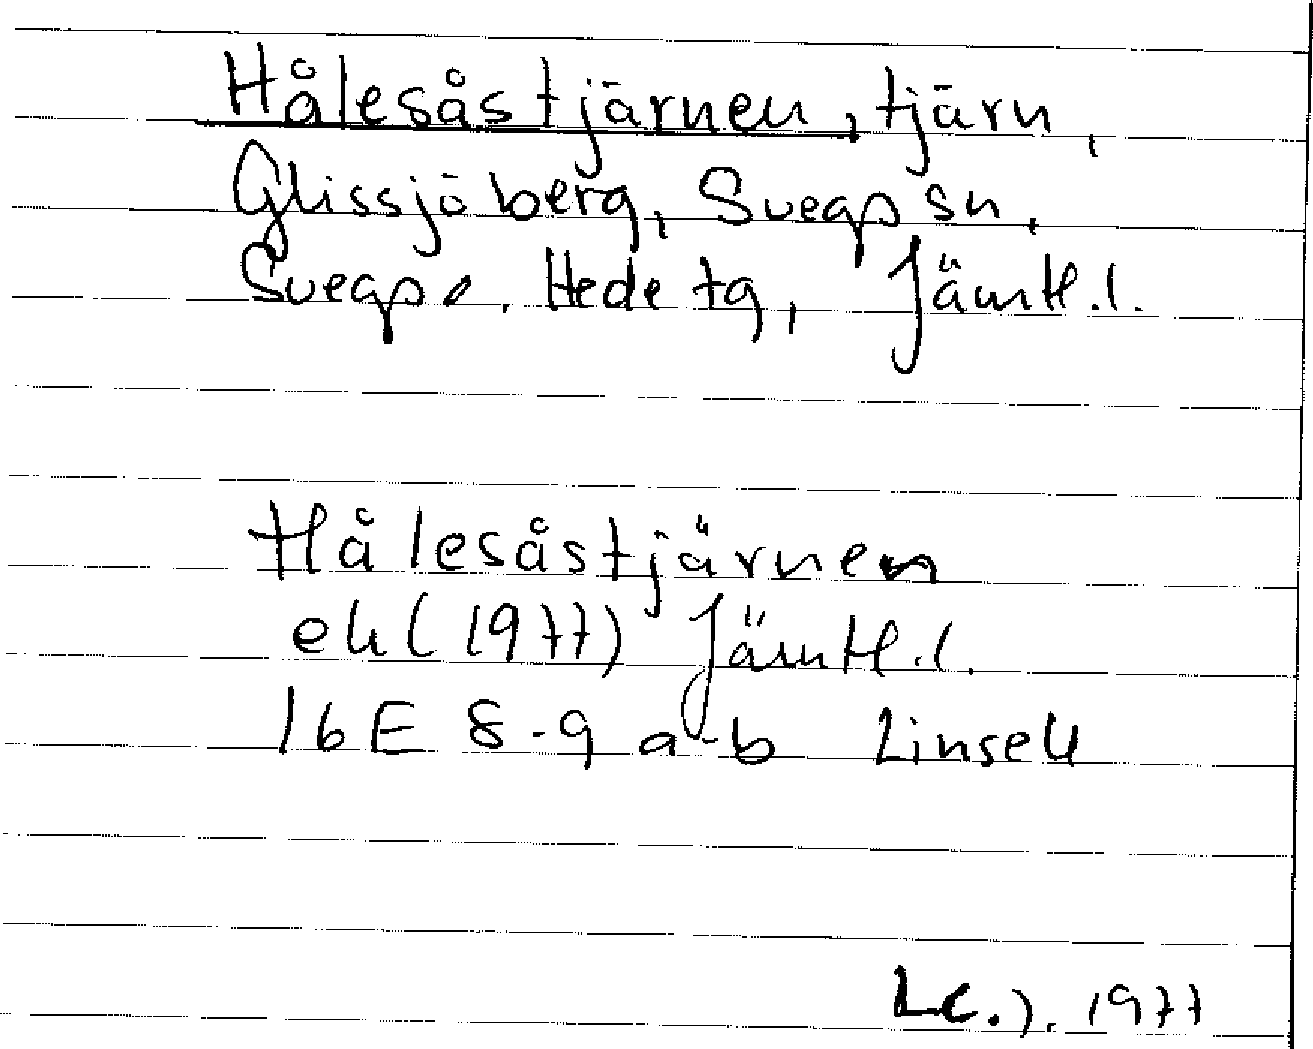 Hålesåstjärnen, tjärn,
Glissjöberg, Svegs sn,
Svegs Hede tg, Jämtl.l.
Hålesåstjärnen
ek (1977) Jämtl.l.
16E 8-9 a-b Linsell
1977